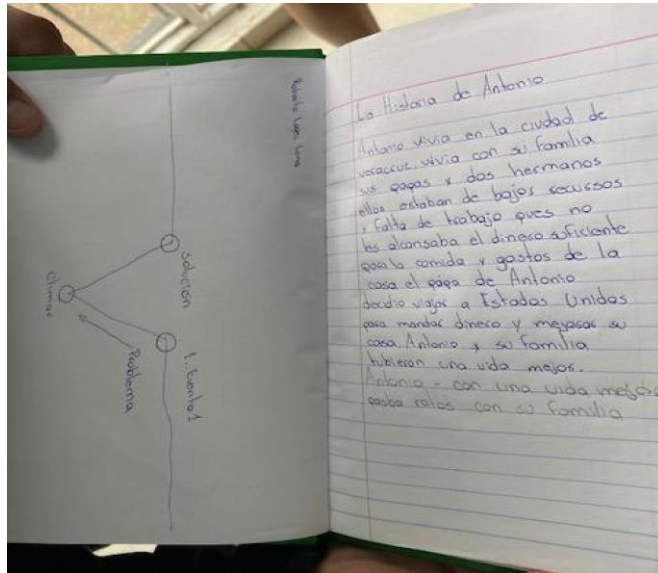 Roberto López Luna
solución
1. Evento 1
Problema
Climax
La Historia de Antonio
Antonio vivia en la ciudad de
veracruz. vivia con su familia
sus papas y dos hermanos
ellos estaban de bajos recursos
y falta de trabajo pues no
les alcansaba el dinero suficiente
para la comida y gastos de la
casa el papa de Antonio
decidio viajar a Estados Unidos
para mandar dinero y mejorar su
casa Antonio y su familia
tubieron una vida mejor.
Antonio - con una vida mejor
pasba ratos con su familia